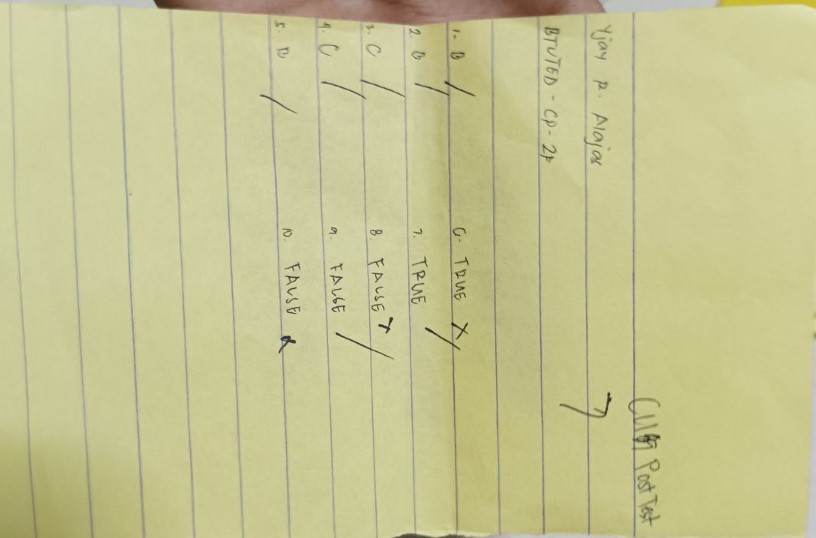 Post Test
Yjay P. Alajas
7
BTVTED - CP - 2F
1. B /
2. B /
3. C /
4. C /
5. B /
6. TRUE X
7. TRUE /
8. FALSE X
9. FALSE /
10. FALSE X